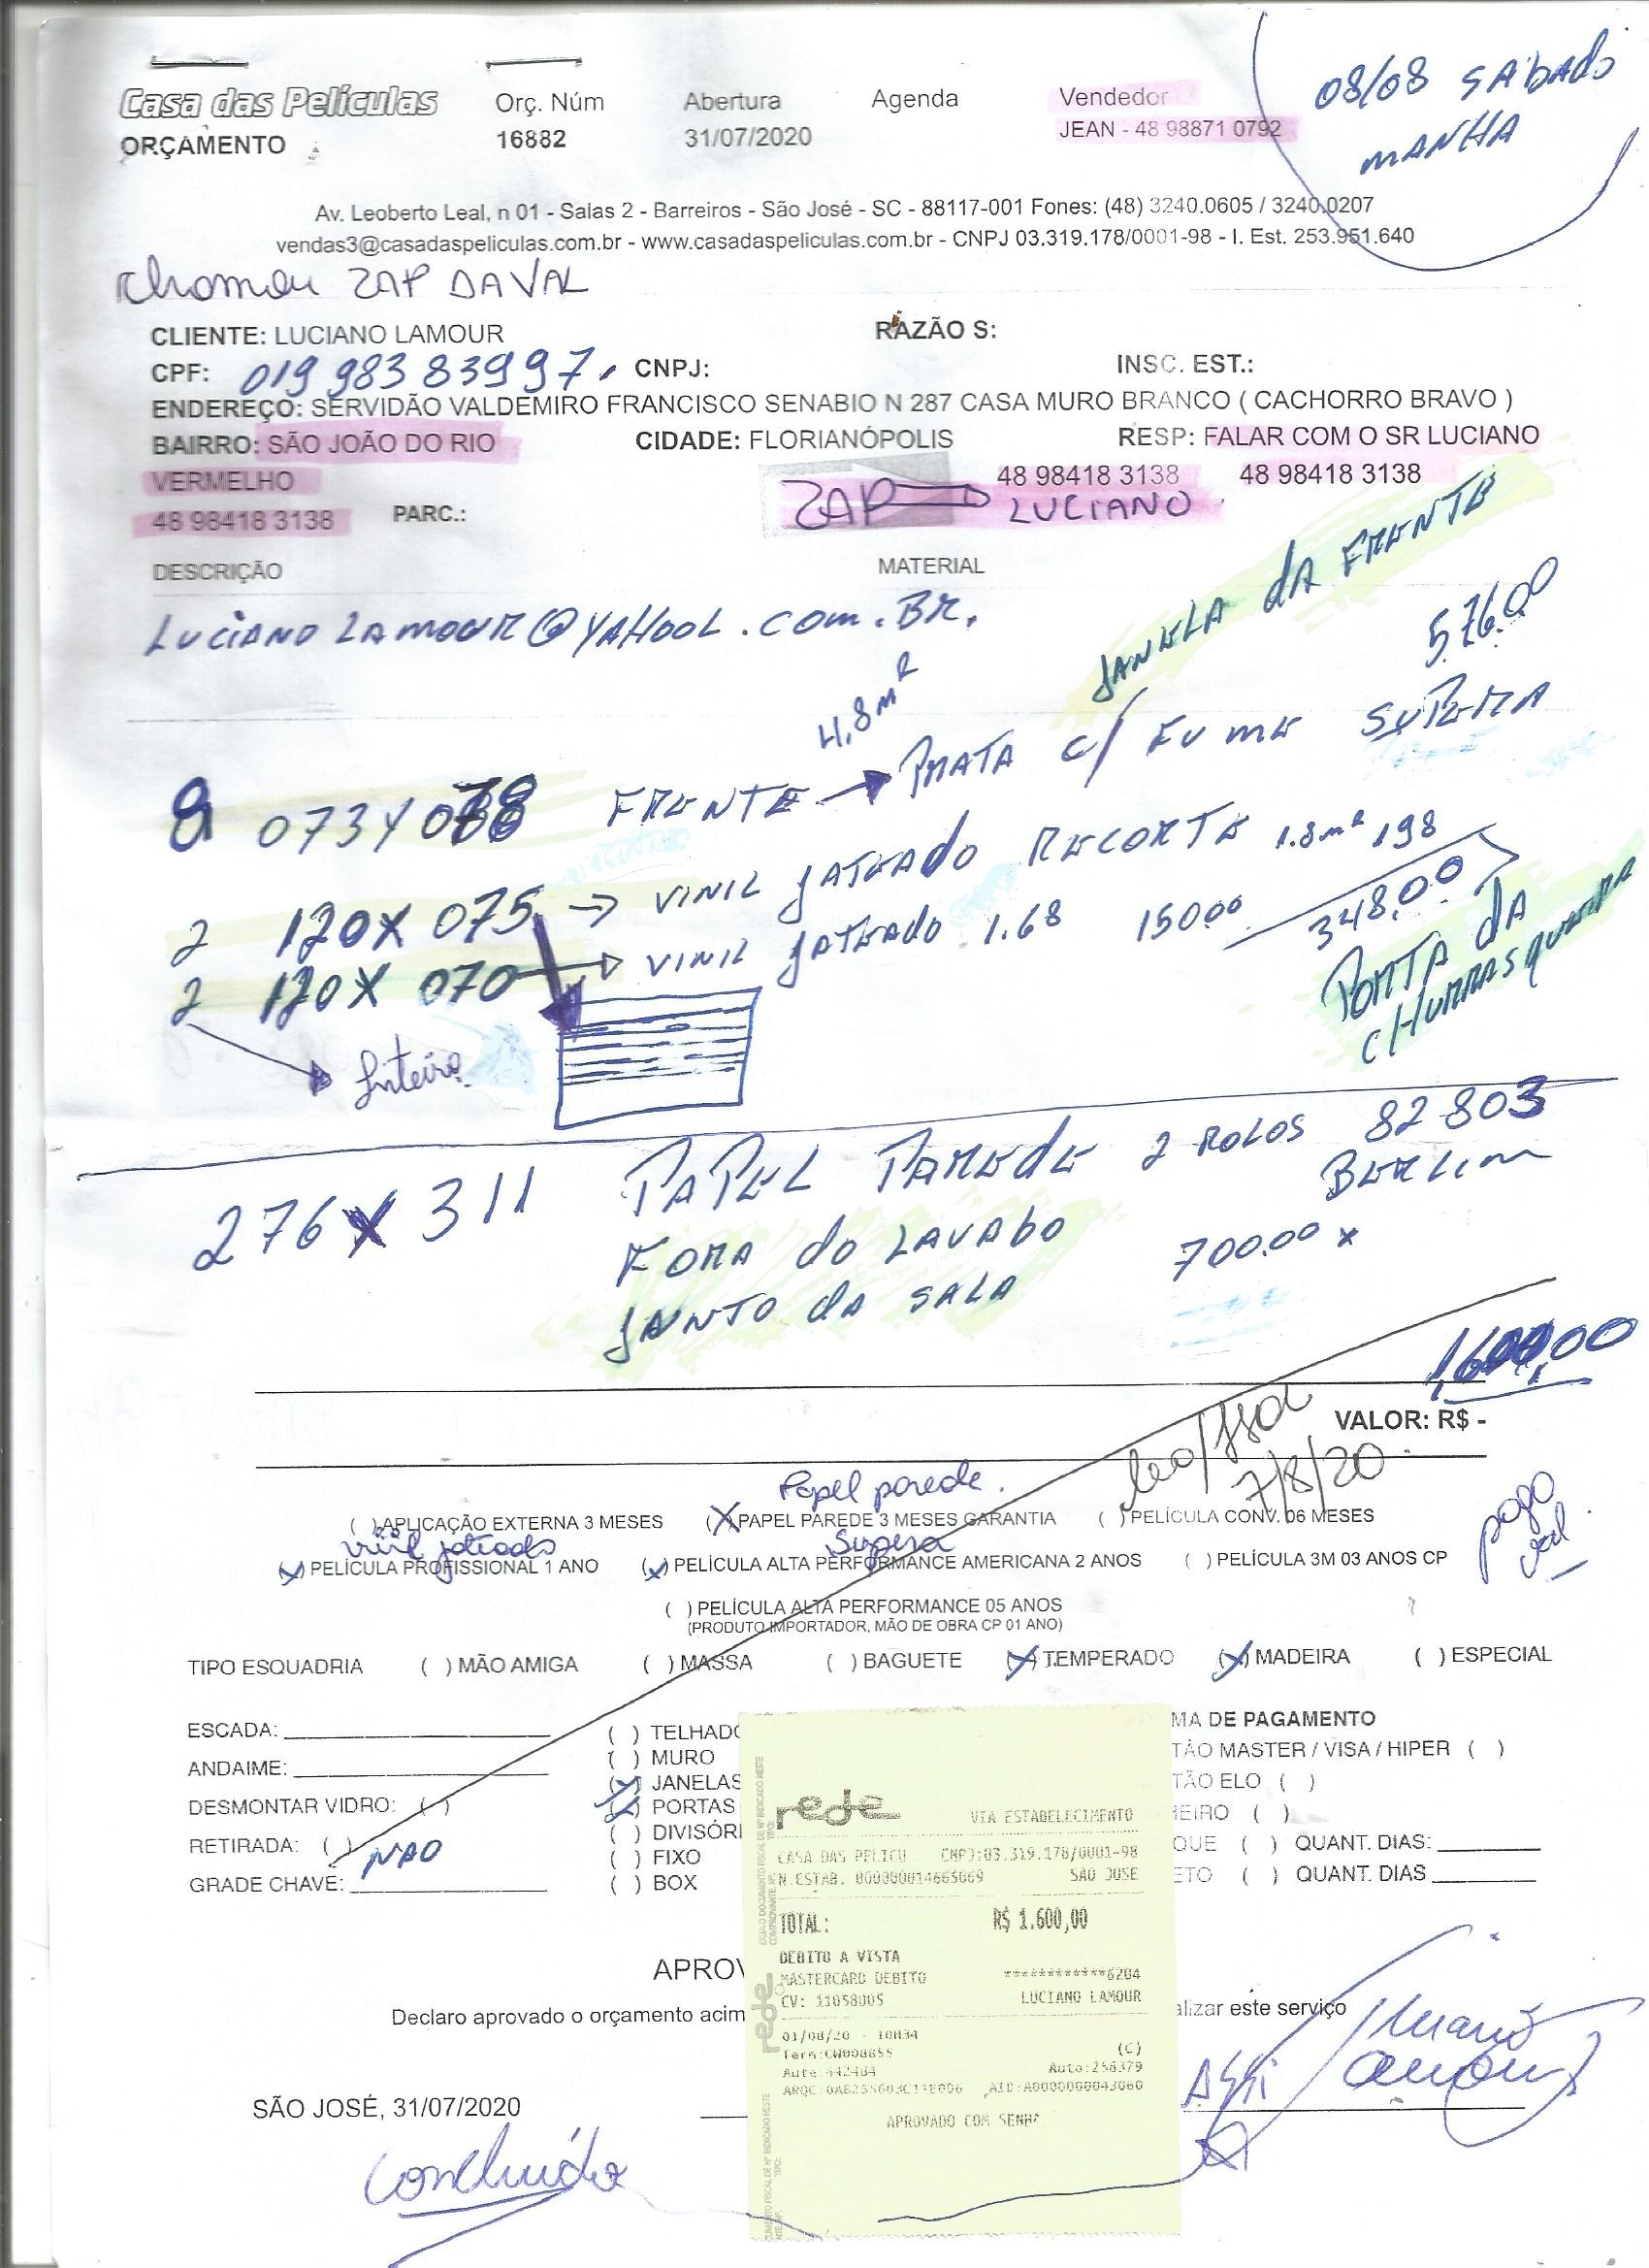 08/08 SABADO
MANHA
Casa das Películas
ORÇAMENTO
Orç. Núm
16882
Abertura
31/07/2020
Agenda
Vendedor
JEAN - 48 98871 0792
Av. Leoberto Leal, n 01 - Salas 2 - Barreiros - São José - SC - 88117-001 Fones: (48) 3240.0605 / 3240.0207
vendas3@casadaspeliculas.com.br - www.casadaspeliculas.com.br - CNPJ 03.319.178/0001-98 - I. Est. 253.951.640
chamou ZAP DAVAL
CLIENTE: LUCIANO LAMOUR RAZÃO S:
CPF: 019 983 839 97 CNPJ: INSC. EST.:
ENDEREÇO: SERVIDÃO VALDEMIRO FRANCISCO SENABIO N 287 CASA MURO BRANCO ( CACHORRO BRAVO )
BAIRRO: SÃO JOÃO DO RIO CIDADE: FLORIANÓPOLIS RESP: FALAR COM O SR LUCIANO
VERMELHO 48 98418 3138 48 98418 3138
48 98418 3138 PARC.: ZAP LUCIANO
DESCRIÇÃO MATERIAL
JANELA DA FRENTE
LUCIANO LAMOUR@YAHOOL.COM.BR.
576,00
4,8 m²
8 073 X 078 FRENTE → PRATA C/ FUME SUPERA
2 120 X 075 → VINIL JATEADO RECORTE 1.8 m² 198
2 120 X 070 → VINIL JATEADO 1.68 150,00 348,00
Inteiro
PORTA DA
CHURRASQUEIRA
276 X 311 PAPEL PAREDE 2 ROLOS 82803
BERLIM
FORA DO LAVABO 700,00 x
JUNTO DA SALA
1.600,00
VALOR: R$ -
7/8/20
Papel parede.
( ) APLICAÇÃO EXTERNA 3 MESES (X) PAPEL PAREDE 3 MESES GARANTIA ( ) PELÍCULA CONV. 06 MESES
vinil jateado Supera
pago
(X) PELÍCULA PROFISSIONAL 1 ANO (X) PELÍCULA ALTA PERFORMANCE AMERICANA 2 ANOS ( ) PELÍCULA 3M 03 ANOS CP
( ) PELÍCULA ALTA PERFORMANCE 05 ANOS
(PRODUTO IMPORTADOR, MÃO DE OBRA CP 01 ANO)
TIPO ESQUADRIA ( ) MÃO AMIGA ( ) MASSA ( ) BAGUETE (X) TEMPERADO (X) MADEIRA ( ) ESPECIAL
ESCADA:
ANDAIME:
DESMONTAR VIDRO: ( )
RETIRADA: ( ) NAO
GRADE CHAVE:
( ) TELHADO
( ) MURO
(X) JANELAS
(X) PORTAS
( ) DIVISÓRI
( ) FIXO
( ) BOX
MA DE PAGAMENTO
TÃO MASTER / VISA / HIPER ( )
TÃO ELO ( )
HEIRO ( )
QUE ( ) QUANT. DIAS:
ETO ( ) QUANT. DIAS
rede
VIA ESTABELECIMENTO
CASA DAS PELICU CNPJ:03.319.178/0001-98
N.ESTAB. 000000014665069 SAO JOSE
TOTAL: R$ 1.600,00
DEBITO A VISTA
MASTERCARD DEBITO ************6204
CV: 11058005 LUCIANO LAMOUR
01/08/20 - 10H34
Term:CW008855 (C)
Aute:442484 Auto:256379
AID:A0000000043060
APROVADO COM SENHA
APROV
Declaro aprovado o orçamento acim alizar este serviço
SÃO JOSÉ, 31/07/2020
concluído